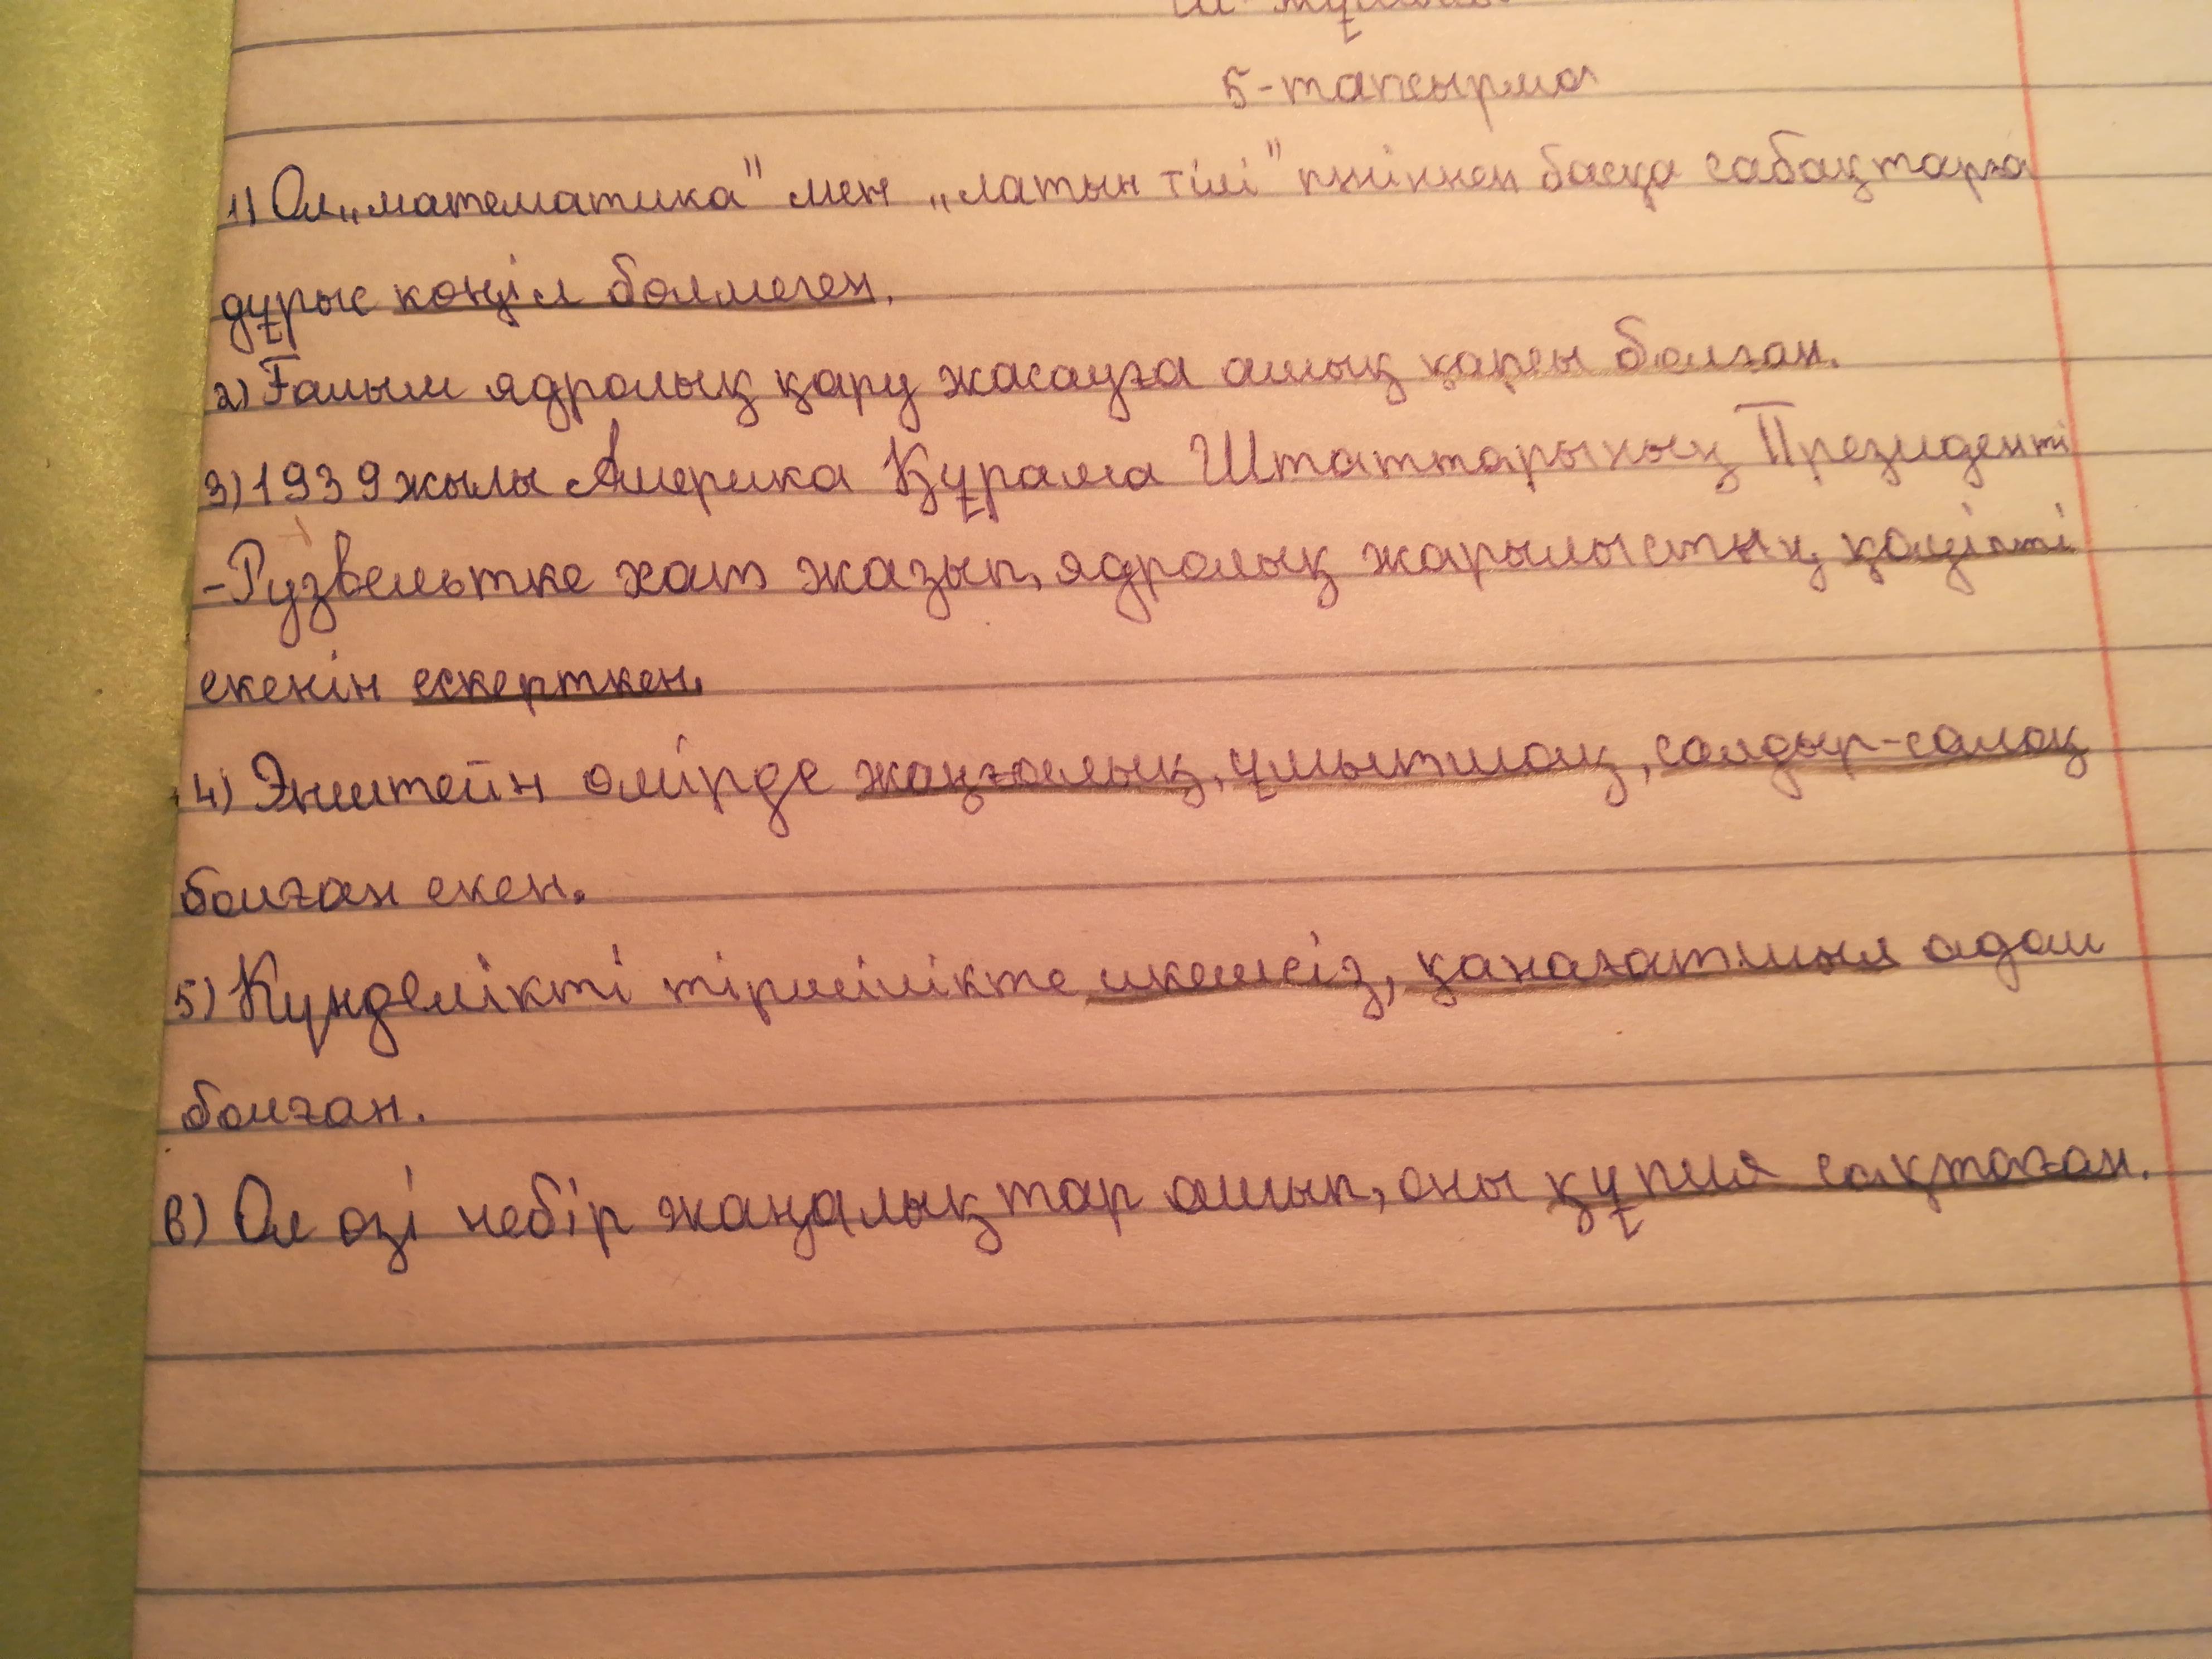 5-тапсырма
1) Ол „математика" мен „латын тілі" пәніннен басқа сабақтарға
дұрыс көңіл бөлмеген.
2) Ғалым ядролық қару жасауға ашық қарсы болған.
3) 1939 жылы Америка Құрама Штаттарының Президенті
-Рузвельтке хат жазып, ядролық жарылыстың қауіпті
екенін ескерткен.
4) Энштейн өмірде жаңғалық, ұмытшақ, салдыр-салақ
болған екен.
5) Күнделікті тіршілікте икемсіз, қанағатшыл адам
болған.
6) Ол өзі небір жаңалықтар ашып, оны құпия сақтаған.